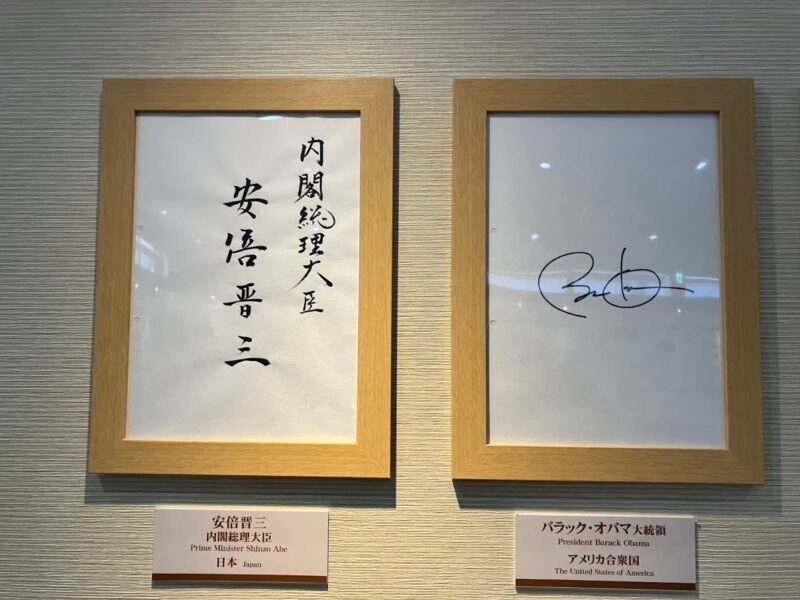 内閣総理大臣
安倍晋三
安倍晋三
内閣総理大臣
Prime Minister Shinzo Abe
日本 Japan
バラック・オバマ大統領
President Barack Obama
アメリカ合衆国
The United States of America